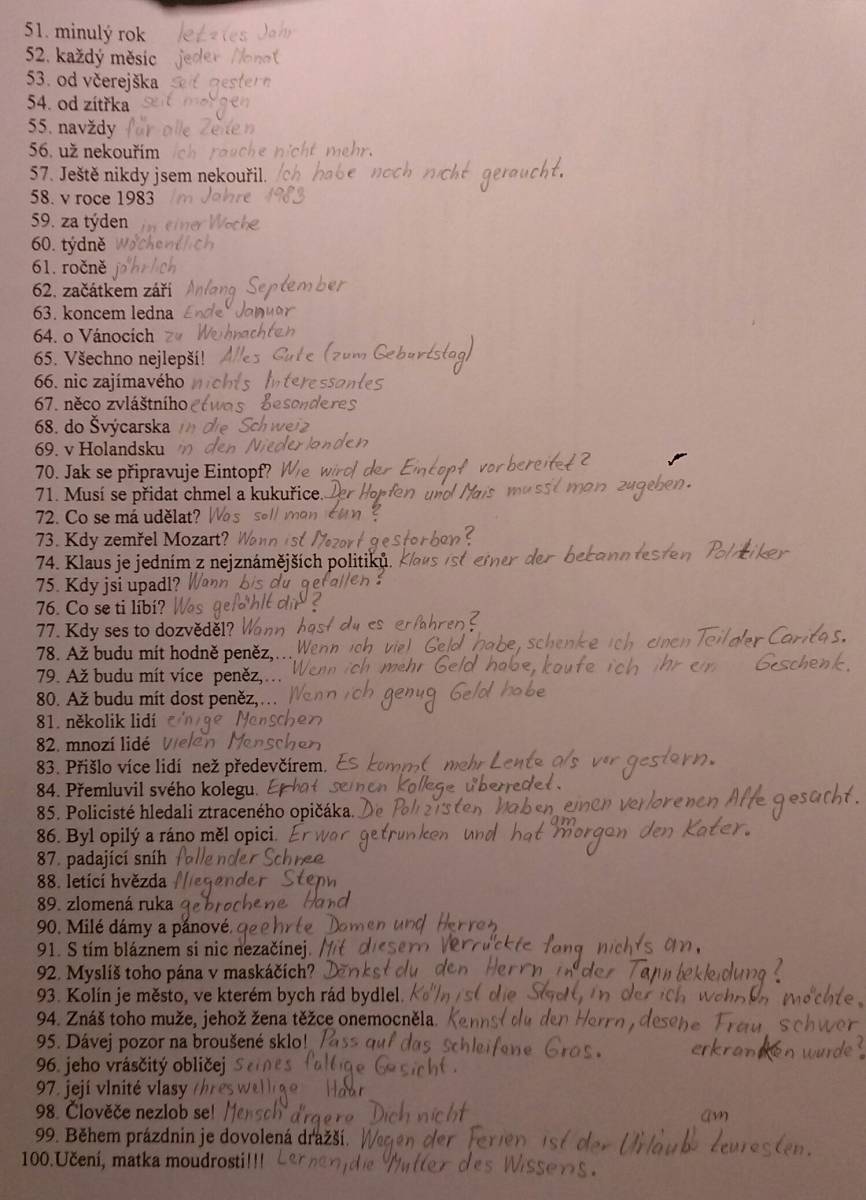 51. minulý rok letztes Jahr
52. každý měsíc jeder Monat
53. od včerejška seit gestern
54. od zítřka seit morgen
55. navždy für alle Zeiten
56. už nekouřím ich rauche nicht mehr.
57. Ještě nikdy jsem nekouřil. Ich habe noch nicht geraucht.
58. v roce 1983 Im Jahre 1983
59. za týden in einer Woche
60. týdně wöchentlich
61. ročně jährlich
62. začátkem září Anfang September
63. koncem ledna Ende Januar
64. o Vánocích zu Weihnachten
65. Všechno nejlepší! Alles Gute (zum Geburtstag)
66. nic zajímavého nichts Interessantes
67. něco zvláštního etwas Besonderes
68. do Švýcarska in die Schweiz
69. v Holandsku in den Niederlanden
70. Jak se připravuje Eintopf? Wie wird der Eintopf vorbereitet?
71. Musí se přidat chmel a kukuřice. Der Hopfen und Mais musst man zugeben.
72. Co se má udělat? Was soll man tun?
73. Kdy zemřel Mozart? Wann ist Mozart gestorben?
74. Klaus je jedním z nejznámějších politiků. Klaus ist einer der bekanntesten Politiker
75. Kdy jsi upadl? Wann bis du gefallen?
76. Co se ti líbí? Was gefählt dir?
77. Kdy ses to dozvěděl? Wann hast du es erfahren?
78. Až budu mít hodně peněz,… Wenn ich viel Geld habe, schenke ich einen Teil der Caritas.
79. Až budu mít více peněz,… Wenn ich mehr Geld habe, kaufe ich ihr ein Geschenk.
80. Až budu mít dost peněz,… Wenn ich genug Geld habe
81. několik lidí einige Menschen
82. mnozí lidé vielen Menschen
83. Přišlo více lidí než předevčírem. Es kommt mehr Leute als vor gestern.
84. Přemluvil svého kolegu. Er hat seinen Kollege überredet.
85. Policisté hledali ztraceného opičáka. De Polizisten haben einen verlorenen Affe gesucht.
86. Byl opilý a ráno měl opici. Er war getrunken und hat am morgen den Kater.
87. padající sníh fallender Schnee
88. letící hvězda fliegender Stern
89. zlomená ruka gebrochene Hand
90. Milé dámy a pánové. geehrte Damen und Herren
91. S tím bláznem si nic nezačínej. Mit diesem Verrückte fang nichts an.
92. Myslíš toho pána v maskáčích? Denkst du den Herrn in der Tarnbekleidung?
93. Kolín je město, ve kterém bych rád bydlel. Köln ist die Stadt, in der ich wohnen möchte.
94. Znáš toho muže, jehož žena těžce onemocněla. Kennst du den Herrn, desehe Frau schwer
95. Dávej pozor na broušené sklo! Pass auf das schleifene Gras. erkranken wurde?
96. jeho vrásčitý obličej seines faltige Gesicht.
97. její vlnité vlasy ihres wellige Haar
98. Člověče nezlob se! Mensch ärgere Dich nicht
99. Během prázdnin je dovolená dražší. Wegen der Ferien ist der Urlaub am teuresten.
100.Učení, matka moudrosti!!! Lernen, die Mutter des Wissens.